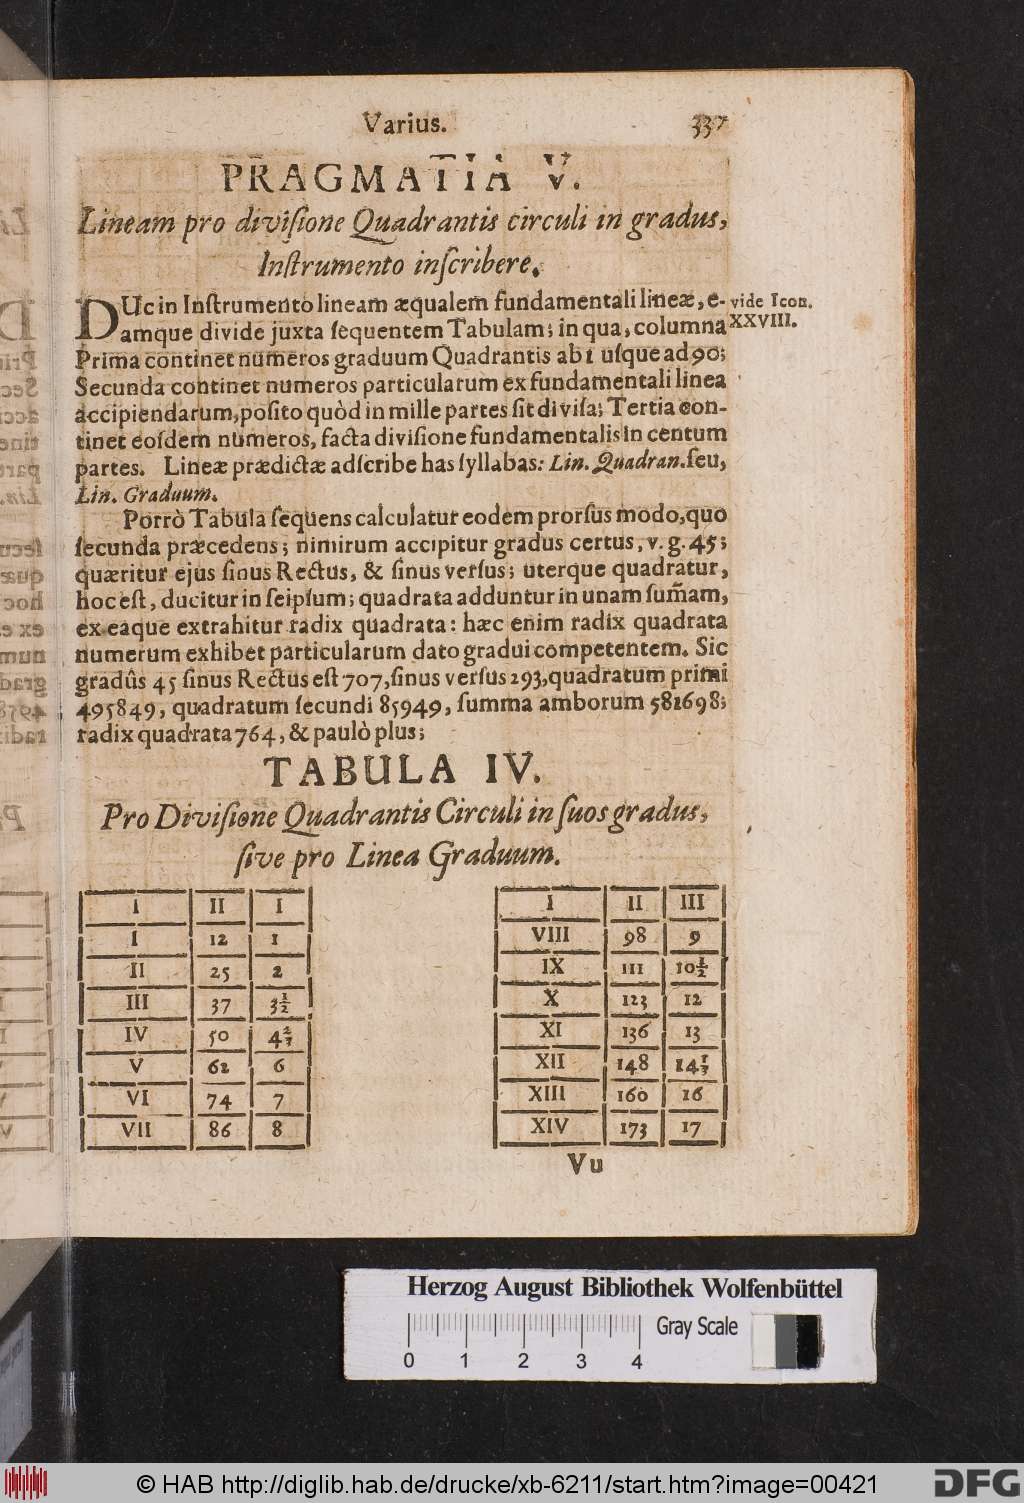 Varius. 337
PRAGMATIA V.
Lineam pro divisione Quadrantis circuli in gradus,
Instrumento inscribere.
DUc in Instrumento lineam æqualem fundamentali lineæ, e-
vide Icon.
XXVIII.
amque divide juxta sequentem Tabulam; in qua, columna
Prima continet numeros graduum Quadrantis ab 1 usque ad 90;
Secunda continet numeros particularum ex fundamentali linea
accipiendarum, posito quòd in mille partes sit divisa; Tertia con-
tinet eosdem numeros, facta divisione fundamentalis in centum
partes. Lineæ prædictæ adscribe has syllabas: Lin. Quadran. seu,
Lin. Graduum.
Porrò Tabula sequens calculatur eodem prorsus modo, quo
secunda præcedens; nimirum accipitur gradus certus, v. g. 45;
quæritur ejus sinus Rectus, & sinus versus; uterque quadratur,
hoc est, ducitur in seipsum; quadrata adduntur in unam sum̃am,
ex eaque extrahitur radix quadrata: hæc enim radix quadrata
numerum exhibet particularum dato gradui competentem. Sic
gradûs 45 sinus Rectus est 707, sinus versus 293, quadratum primi
495849, quadratum secundi 85949, summa amborum 581698;
radix quadrata 764, & paulò plus;
TABULA IV.
Pro Divisione Quadrantis Circuli in suos gradus,
sive pro Linea Graduum.
I II I
I 12 1
II 25 2
III 37 3½
IV 50 4⅔
V 62 6
VI 74 7
VII 86 8
I II III
VIII 98 9
IX 111 10½
X 123 12
XI 136 13
XII 148 14⅓
XIII 160 16
XIV 173 17
Vu
Herzog August Bibliothek Wolfenbüttel
Gray Scale
0 1 2 3 4
© HAB http://diglib.hab.de/drucke/xb-6211/start.htm?image=00421
DFG